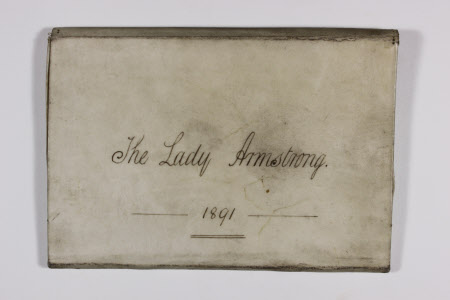 The Lady Armstrong.
1891